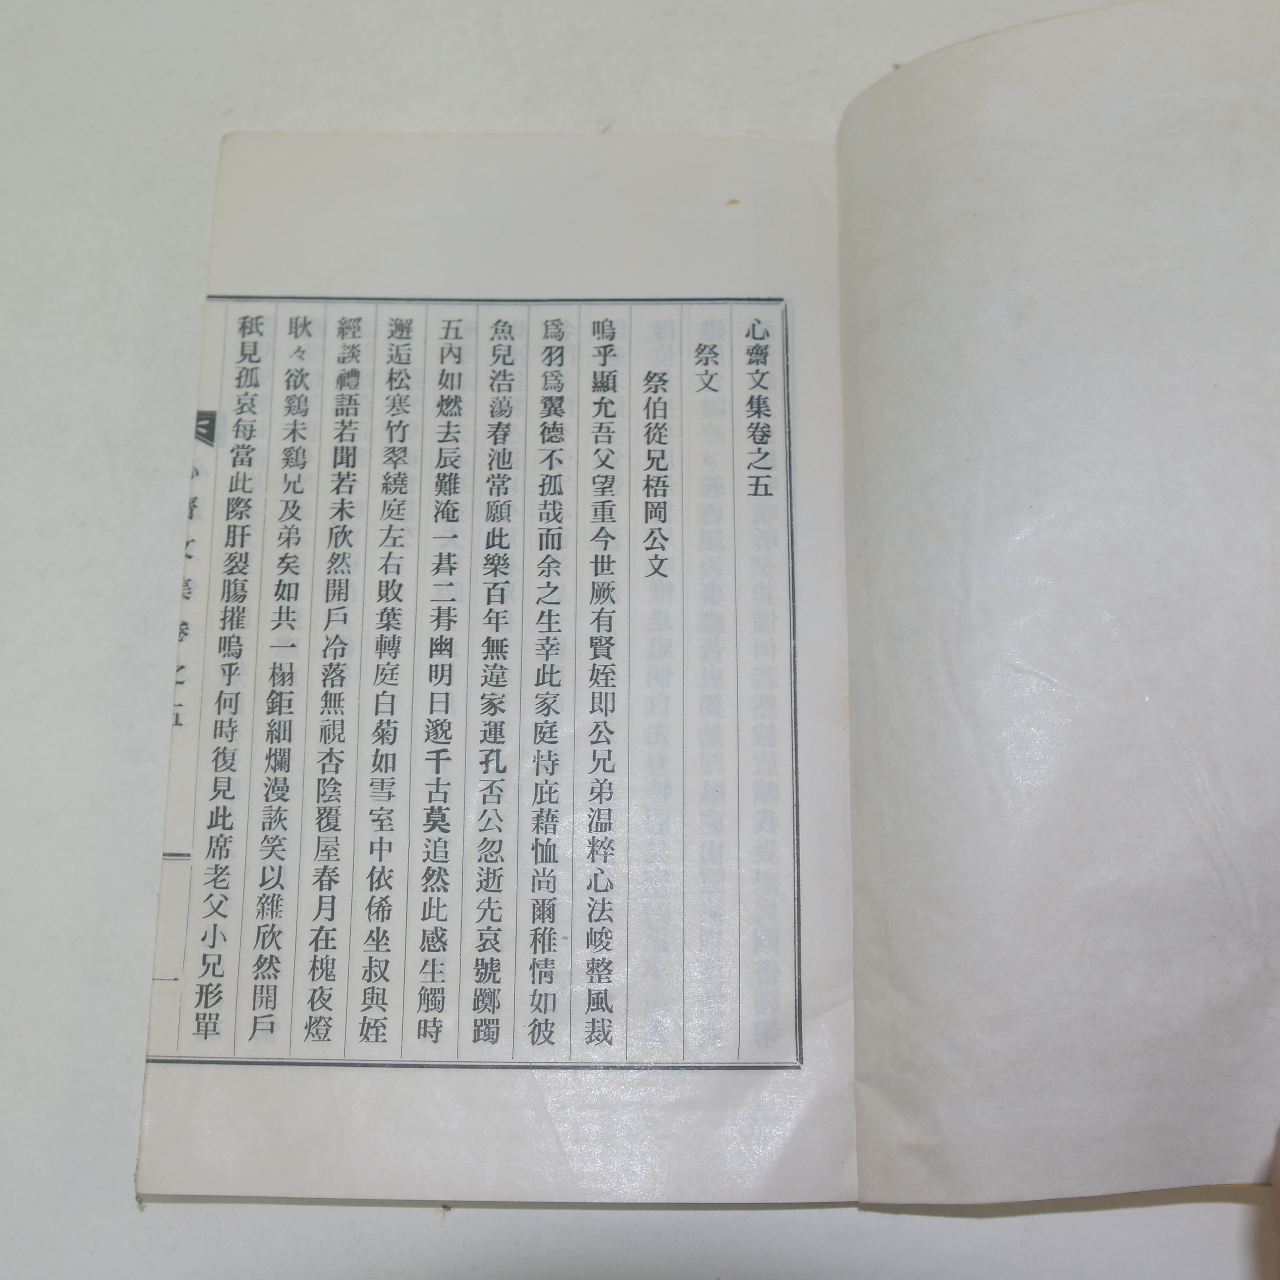 心齋文集卷之五
祭文
祭伯從兄梧岡公文
嗚乎顯允吾父望重今世厥有賢姪即公兄弟温粹心法峻整風裁
爲羽爲翼德不孤哉而余之生幸此家庭恃庇藉恤尚爾稚情如彼
魚兒浩蕩春池常願此樂百年無違家運孔否公忽逝先哀號躑躅
五內如燃去辰難淹一朞二朞幽明日邈千古莫追然此感生觸時
邂逅松寒竹翠繞庭左右敗葉轉庭白菊如雪室中依俙坐叔與姪
經談禮語若聞若未欣然開戶冷落無視杏陰覆屋春月在槐夜燈
耿々欲鷄未鷄兄及弟矣如共一榻鉅細爛漫詼笑以雜欣然開戶
秖見孤哀每當此際肝裂膓摧嗚乎何時復見此席老父小兄形單
心齋文集卷之五
一